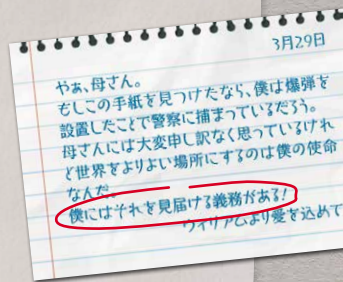 3月29日
やぁ、母さん。
もしこの手紙を見つけたなら、僕は爆弾を
設置したことで警察に捕まっているだろう。
母さんには大変申し訳なく思っているけれ
ど世界をよりよい場所にするのは僕の使命
なんだ。
僕にはそれを見届ける義務がある!
ウィリアムより愛を込めて